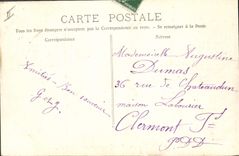 CARTE POSTALE
Tous les Pays étrangers n'acceptent pas la Correspondance au recto. — Se renseigner à la Poste
Correspondance
Adresse
Mademoiselle Augustine
Dumas
36 rue de Chateaudun
maison Labourier
Amitiés Bon souvenir
Clermont Fd
P.D.D